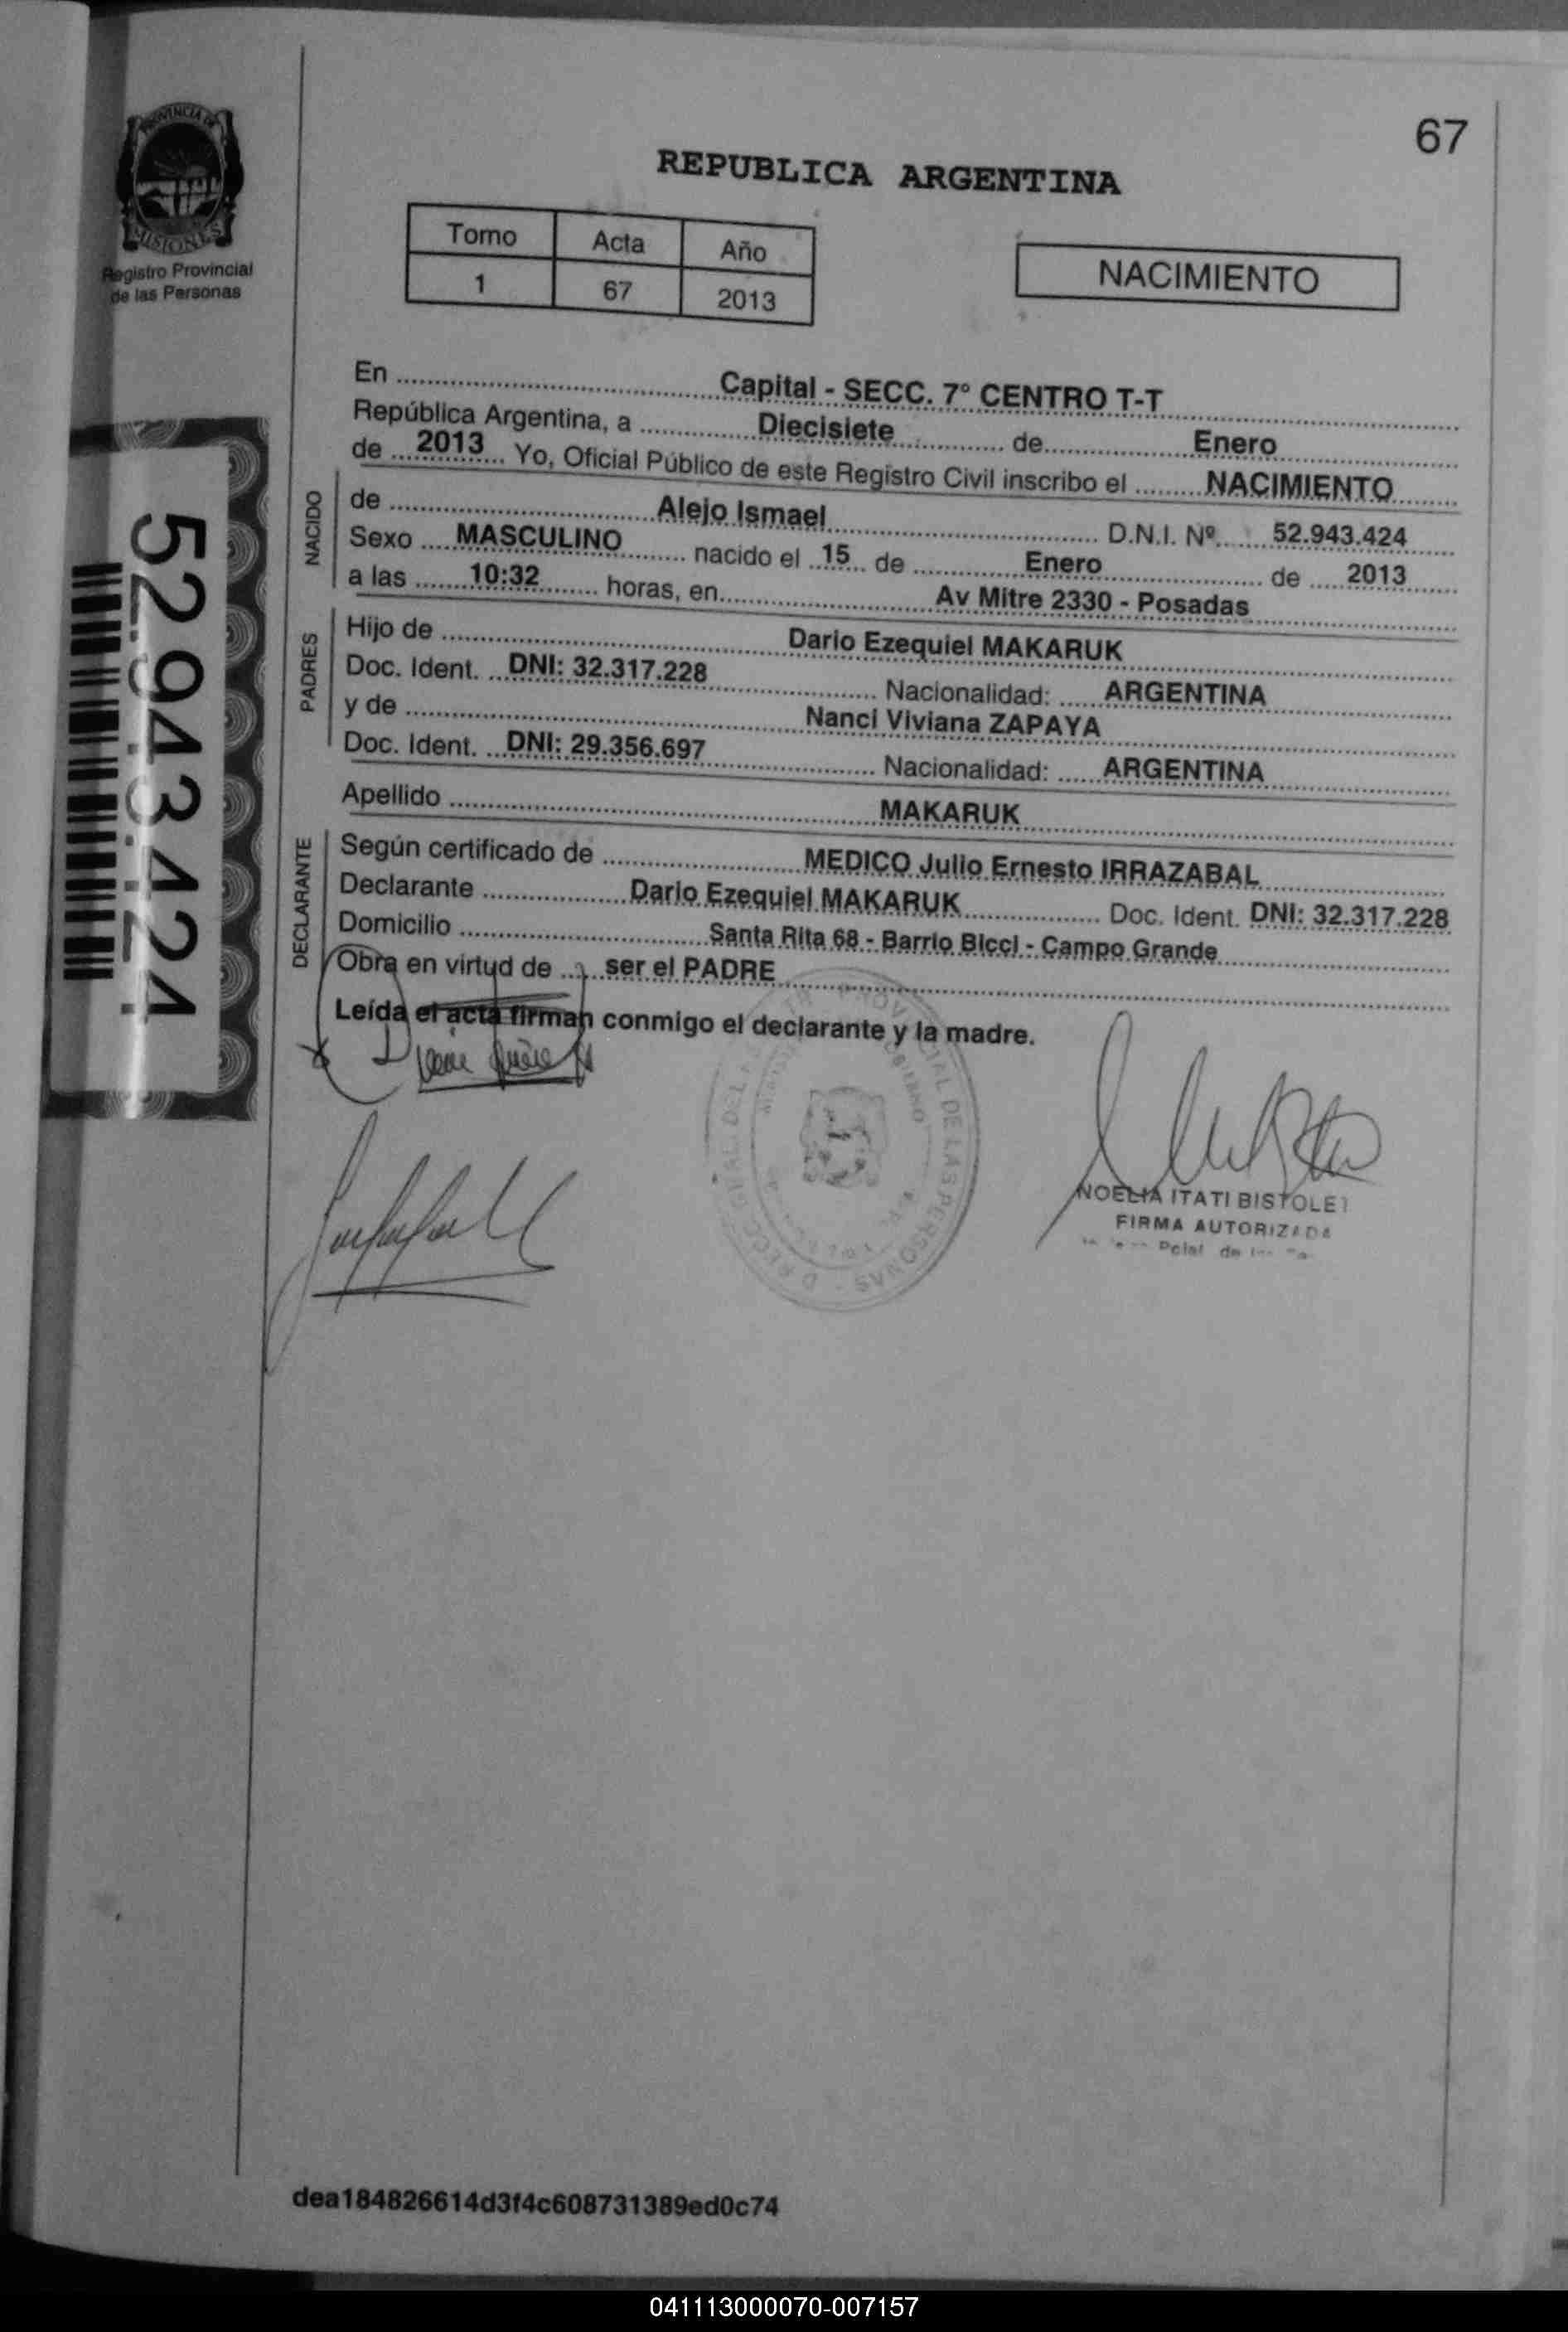 67
PROVINCIA DE
MISIONES
Registro Provincial
de las Personas
REPUBLICA ARGENTINA
Tomo Acta Año
1 67 2013
NACIMIENTO
52.943.424
En Capital - SECC. 7° CENTRO T-T
República Argentina, a Diecisiete de Enero
de 2013 Yo, Oficial Público de este Registro Civil inscribo el NACIMIENTO
NACIDO
de Alejo Ismael D.N.I. Nº 52.943.424
Sexo MASCULINO nacido el 15 de Enero de 2013
a las 10:32 horas, en Av Mitre 2330 - Posadas
PADRES
Hijo de Dario Ezequiel MAKARUK
Doc. Ident. DNI: 32.317.228 Nacionalidad: ARGENTINA
y de Nanci Viviana ZAPAYA
Doc. Ident. DNI: 29.356.697 Nacionalidad: ARGENTINA
Apellido MAKARUK
DECLARANTE
Según certificado de MEDICO Julio Ernesto IRRAZABAL
Declarante Dario Ezequiel MAKARUK Doc. Ident. DNI: 32.317.228
Domicilio Santa Rita 68 - Barrio Bicci - Campo Grande
Obra en virtud de ser el PADRE
Leída el acta firman conmigo el declarante y la madre.
NOELIA ITATI BISTOLE
FIRMA AUTORIZADA
Pcial. de
dea184826614d3f4c608731389ed0c74
041113000070-007157